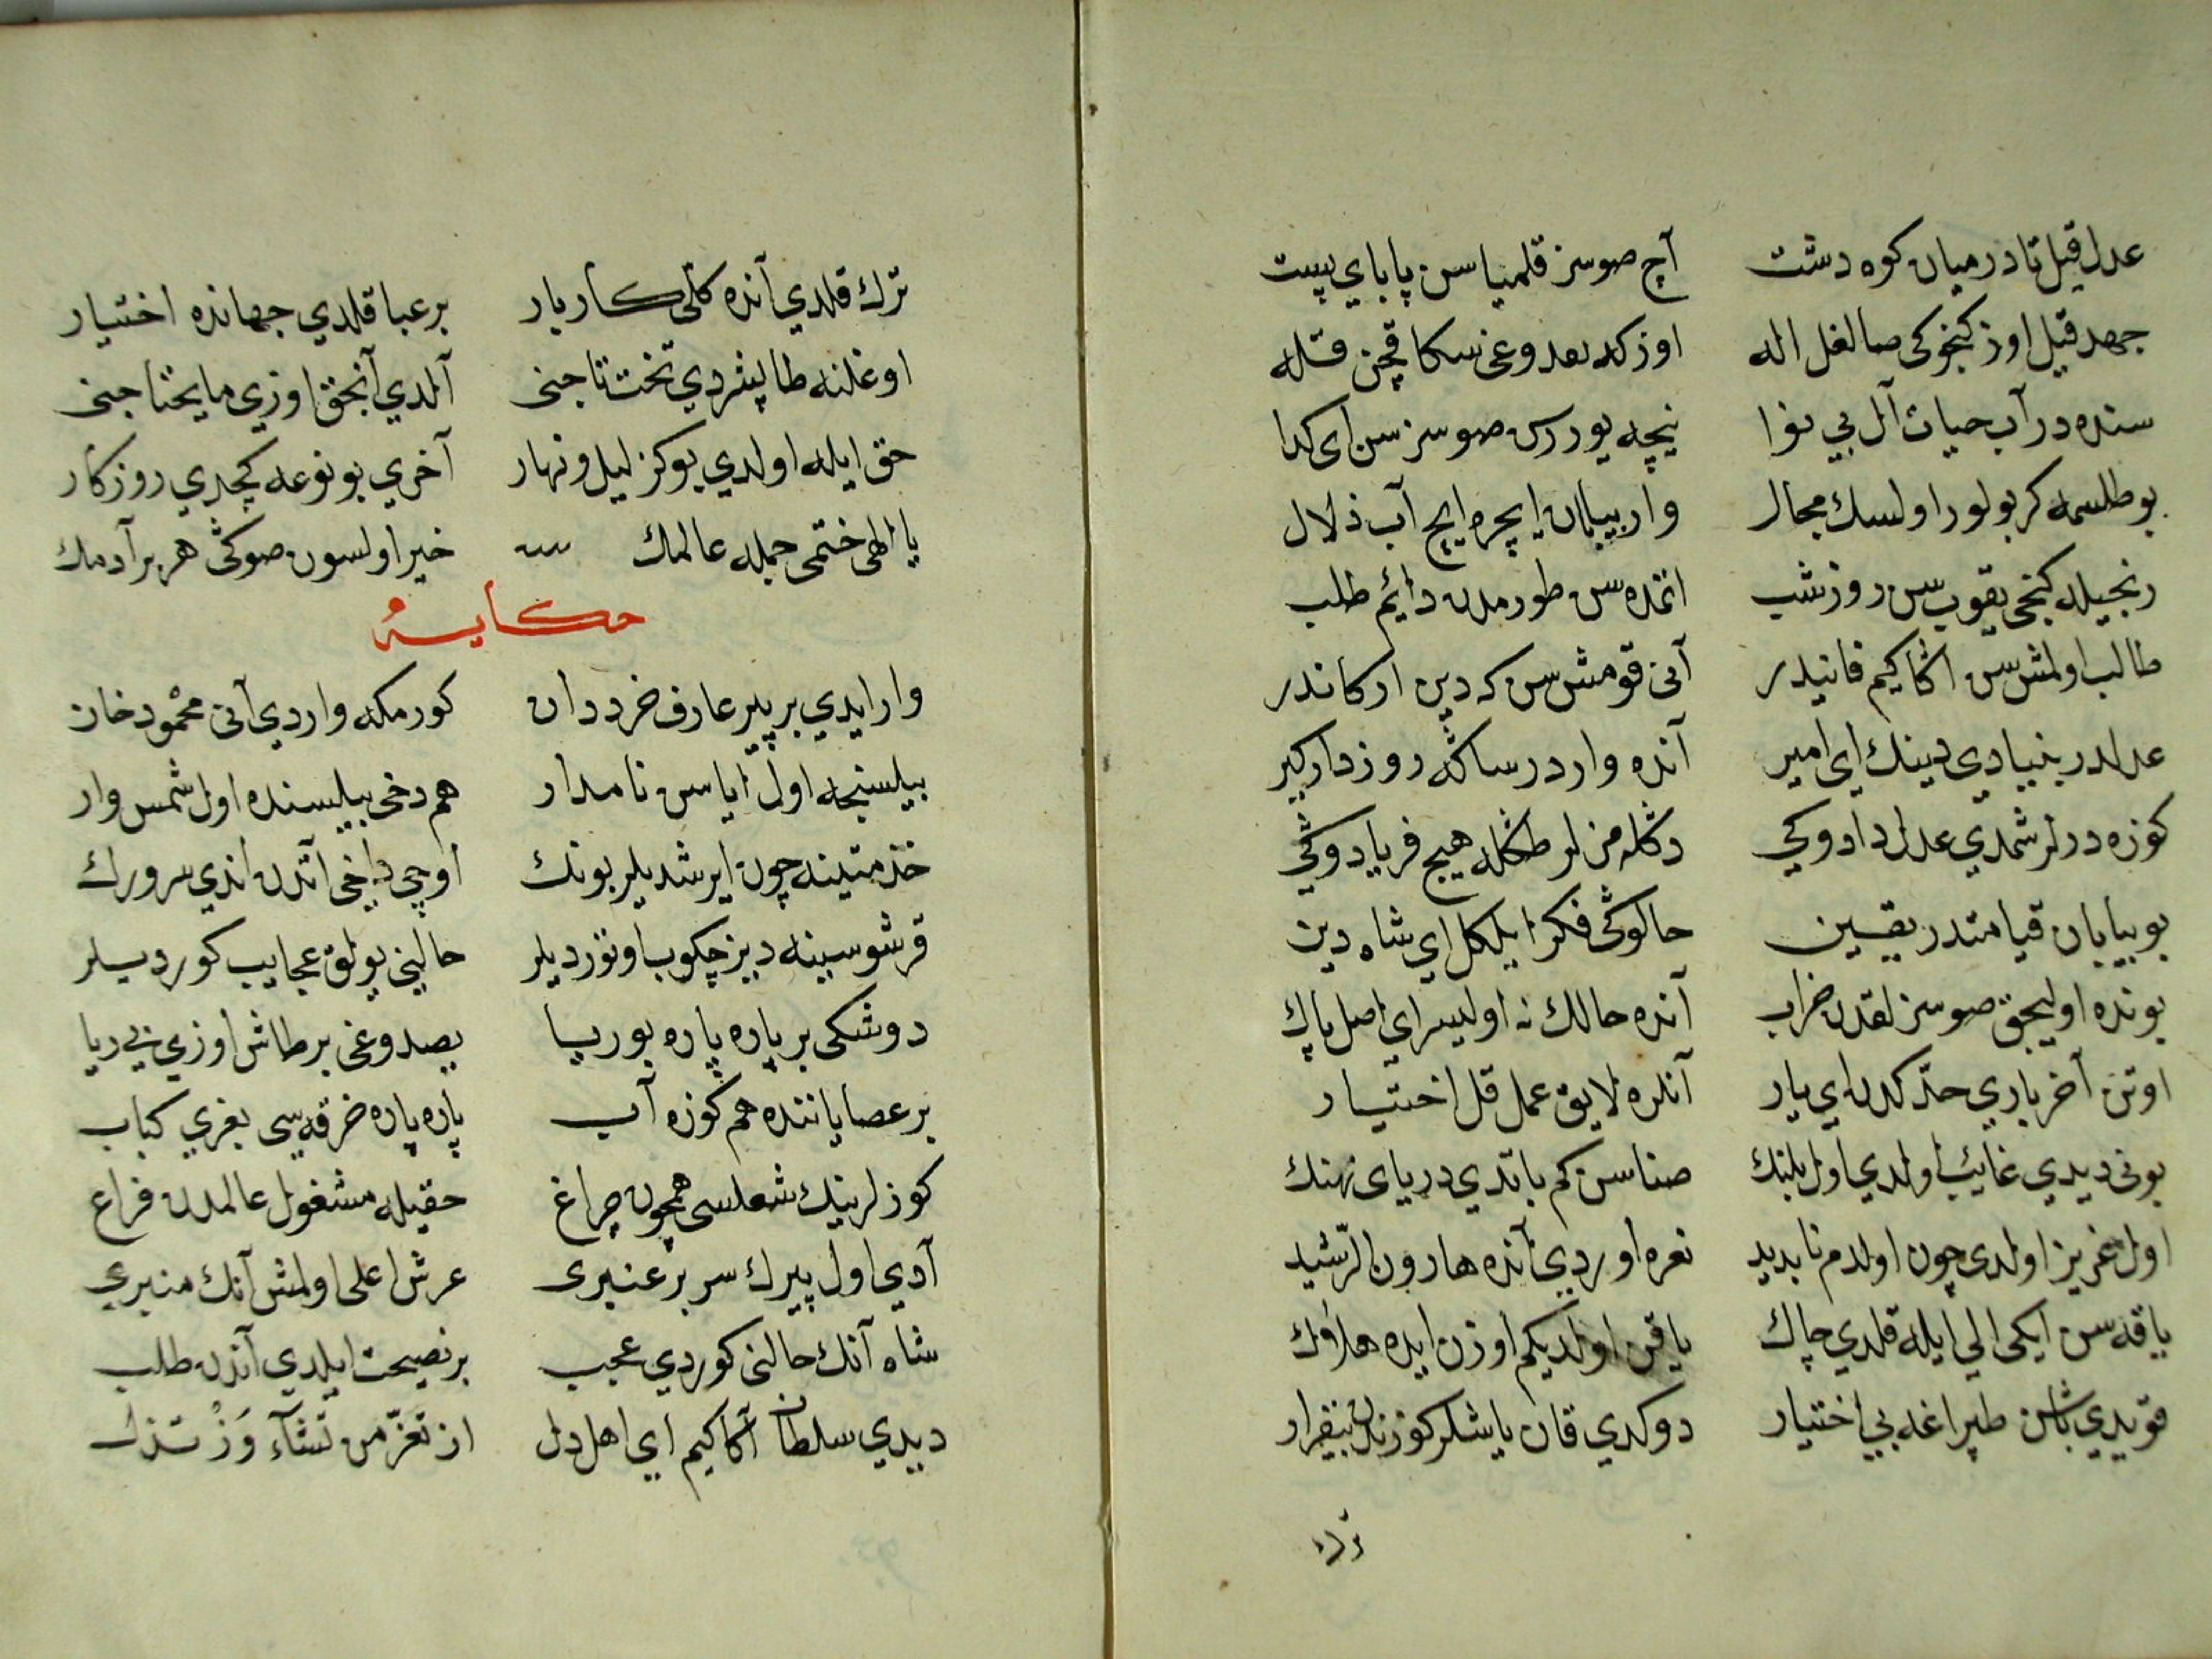 عدل قيل تا در ميان كوه دشت آچ صوسز قلميا سن پا باي پيست
جهد قيل اوز كنجوكى صالغل اله اوزكه بعدوغى سكا قچن قله
سنده در آب حيات آل بي نوا نيچه يوررس صوسز سن اى كدا
بو طلسمه كر بولور اولسك مجال وار بيبان ايچره ايچ آب ذلال
رنجيله كنجى بقوب سن روز شب اتمده سن طورمدن دائم طلب
طالب اولمش سن اڭا كيم فانيدر آنى قومش سن كه دين اركاندر
عدلدر بنيادي دينك اى امير آنده واردر ساڭه روز دار كير
كوزه درلر شمدي عدل دادوكي دكله مزلر طڭله هيج فريادوڭي
بو بيابان قيامتدر يقين حالوڭى فكر ايلكل اي شاه دين
بونده اوليجق صوسزلقدن خراب آنده حالك نه اوليسر اي اصل پاك
اوتن آخر باري حدّكدن اي يار آنلره لايق عمل قل اختيار
بونى ديدي غايب اولدي اول پلنك صناسن كم باتدي درياى نهنك
اول عزيز اولدى چون اولدم نا بديد نعره اوردي آنده هارون الرّشيد
ياقه سن ايكى الي ايله قلدي چاك ياقن اولديكم اوزن ايده هلاك
قويدي باشن طپراغه بي اختيار دوكدي قان ياشلر كوزندن بيقرار
ترك
ترك قلدي آنده كلى كاربار بر عبا قلدي جهانده اختيار
اوغلنه طاپشردي تخت تاجنى آلدي آنجق اوزي مايحتاجنى
حق ايله اولدي بوكز ليل و نهار آخري بو نوعه كچدي روزكار
يا الهى ختمى جمله عالمك خير اولسون صوڭى هر بر آدمك
حكايه
وار ايدي بر پير عارف خرد دان كورمكه واردي آنى محمود خان
بيلسنجه اول اياس نامدار هم دخى بيلسنده اول شمس وار
خذمتينه چون ايرشديلر بونك اوچى داخى اتدن اندي سرورك
قرشوسينه ديز چكوب اوتورديلر حالينى بولق عجايب كورديلر
دوشكى بر پاره پاره بوريا يصدوغى بر طاش اوزي بي ريا
بر عصا ياننده هم كوزه آب پاره پاره خرقه سى بغري كباب
كوزلرينك شعلسى همچون چراغ حقيله مشغول عالمدن فراغ
آدي اول پيرك سربر عنبرى عرش اعلى اولمش آنك منبري
شاه آنك حالنى كوردي عجب بر نصيحت ايلدي آندن طلب
ديدي سلطان آڭا كيم اي اهل دل از تعزّ من تشآء وز تذل